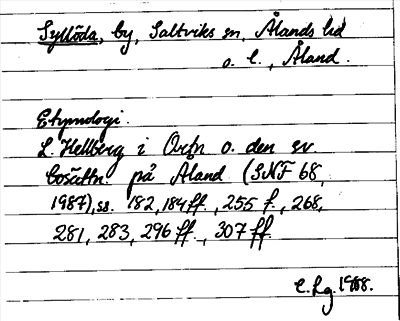 Syllöda, by, Saltviks sn, Ålands hd
o. l., Åland.
Etymologi.
L. Hellberg i Ortn o. den sv
bosättn. på Åland (SNF 68,
1987), ss. 182, 184 ff., 255 f., 268,
281, 283, 296 ff., 307 ff.
C. Lg. 1988.